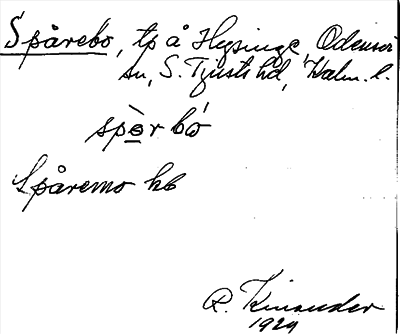 Spårebo, tp å Hysinge, Odensvi
sn, S. Tjusts hd, Kalm. l.
spo̲r bo
Spåremo hb
R. Kinander
1929